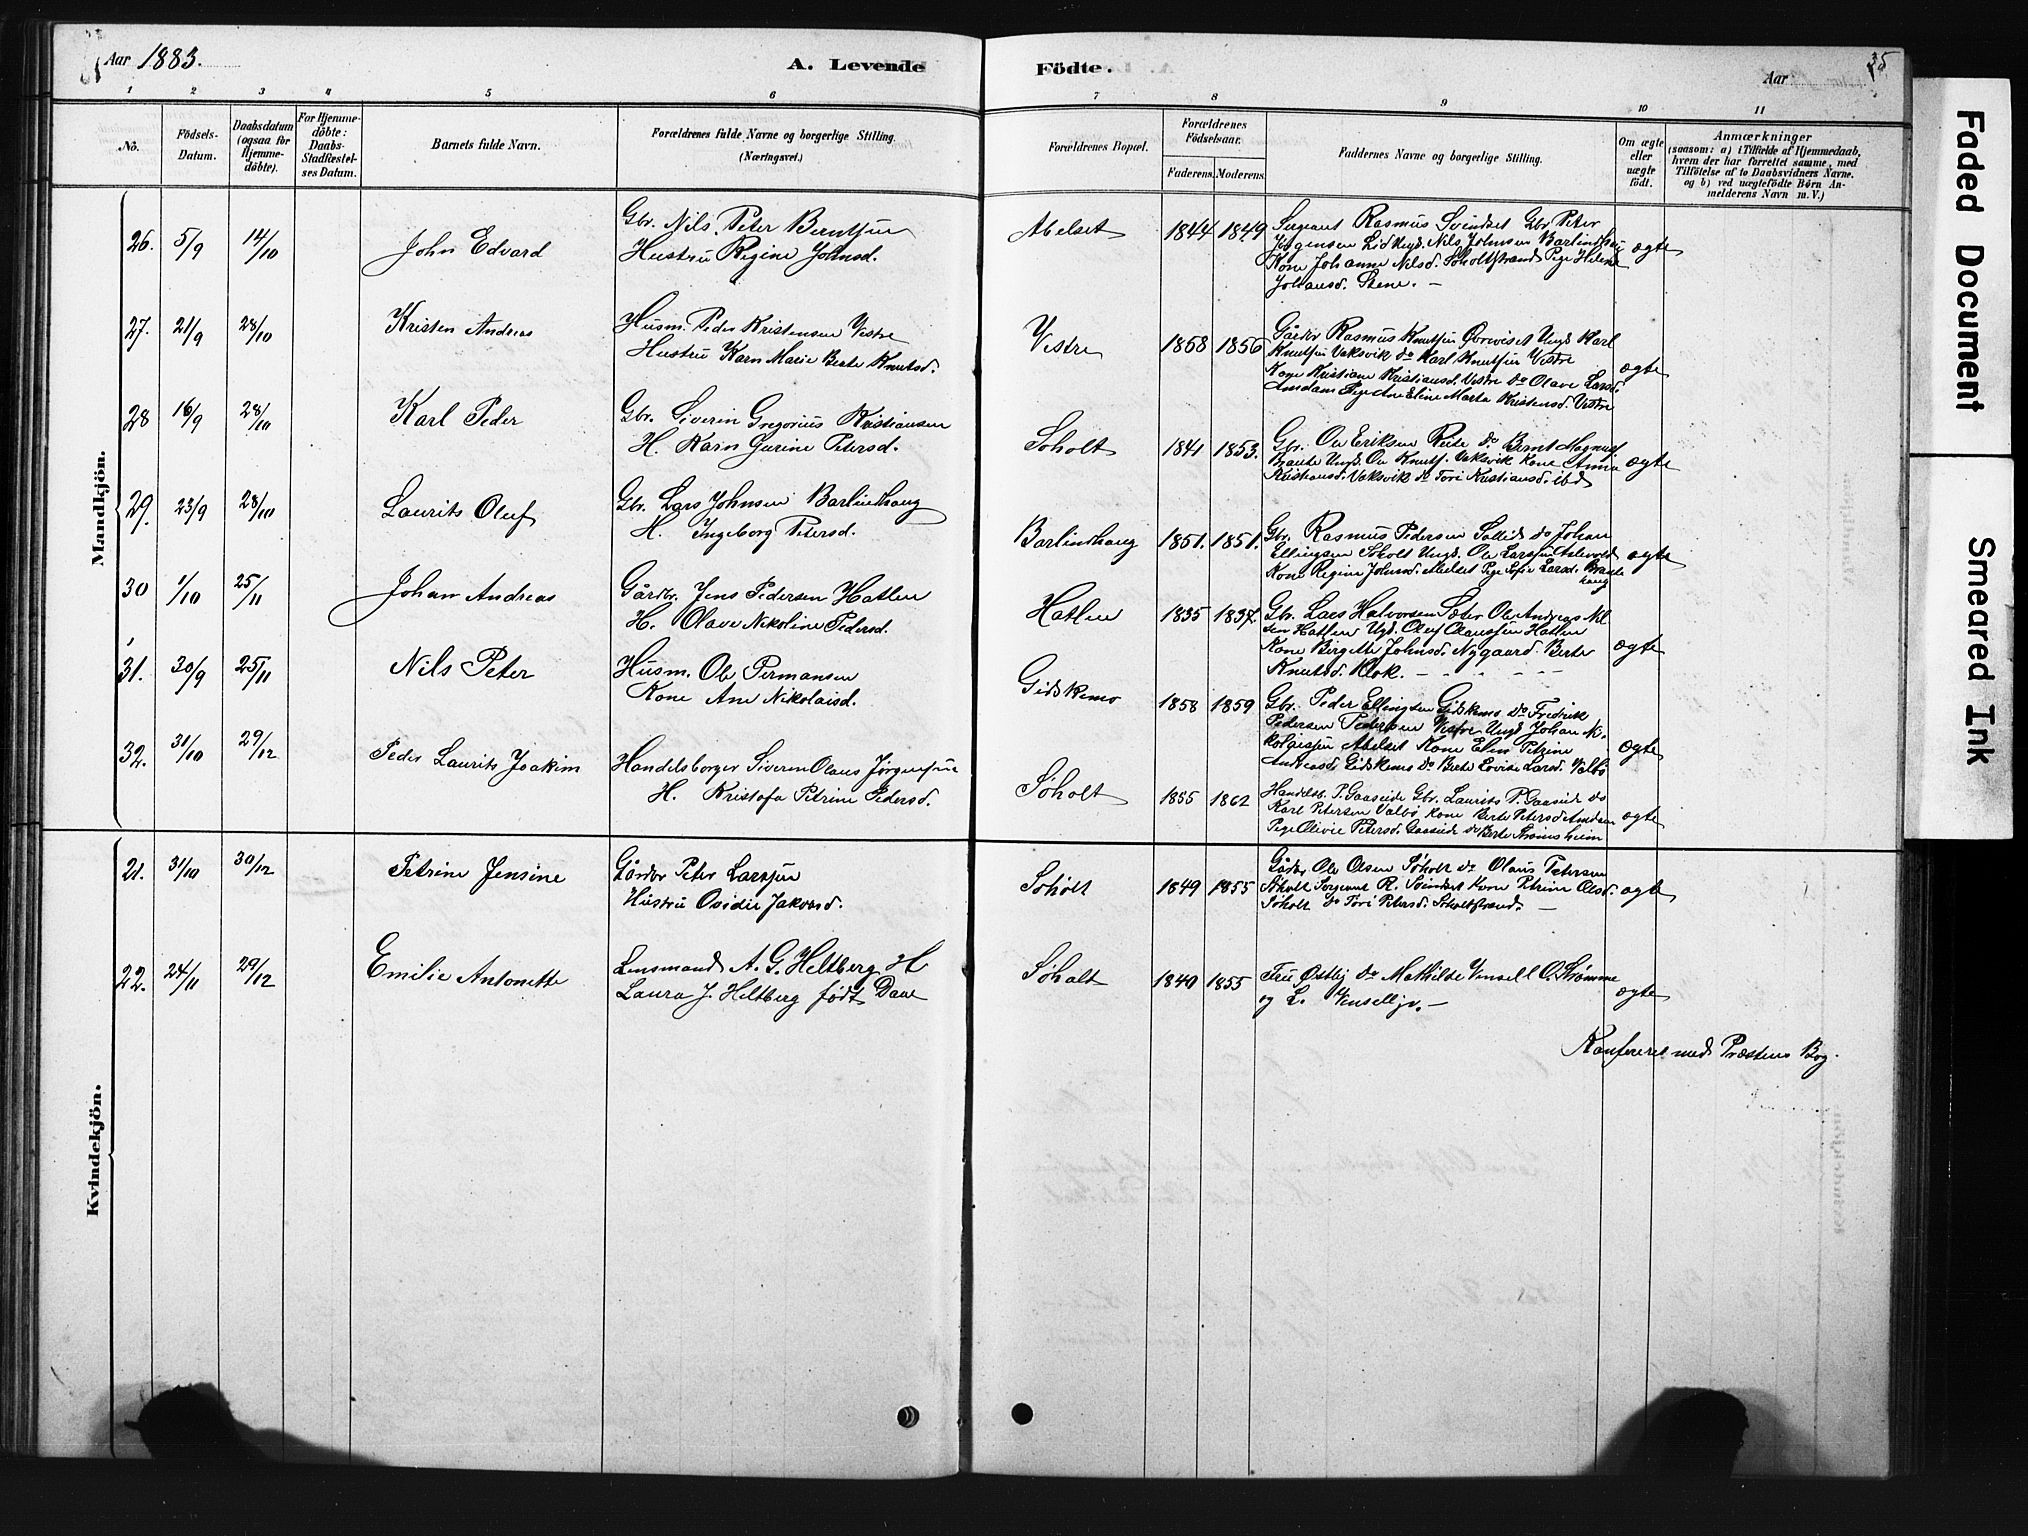 Aar 1883.
A. Levende Födte.
Aar
1 2 3 4 5 6 7 8 9 10 11
No.
Födsels-Datum.
Daabsdatum (ogsaa for Hjemme-döbte).
For Hjemme-döbte: Daabs-Stadfæstel-ses Datum.
Barnets fulde Navn.
Forældrenes fulde Navne og borgerlige Stilling. (Næringsvei.)
Forældrenes Bopæl.
Forældrenes Födselsaar.
Faderens. Moderens.
Faddernes Navne og borgerlige Stilling.
Om ægte eller uægte födt.
Anmærkninger
(saasom: a) i Tilfælde af Hjemmedaab, hvem der har forrettet samme, med Tilföielse af to Daabsvidners Navne. og b) ved uægtefödte Börn An-melderens Navn m. V.)
Mandkjön.
26. 5/9 14/10 John Edvard
Gbr. Nils Peter Berntsen
Hustru Regine Johnsd.
Abelset 1844 1849
Sergeant Rasmus Svindset Gbr. Peter
Jørgensen Lid Ungk. Nils Johnsen Barlindhaug
Kone Johanne Nilsd. Søholtstrand Pige Helene
Johansd. Stene. —
ægte
27. 21/9 28/10 Kristen Andreas
Husm. Peder Kristensen Vestre
Hustru Karn Marie Berte Knutsd.
Vestre 1858 1856
Gårdbr Rasmus Knutsen Ungk Karl
Knutsen Vaksvik do Karl Knutsen Vestre
Kone Kristiane Kristiansd. Vestre do Olave Larsd.
Amdam Pige Ane Eline Marta Kristensd. Vestre
ægte
28 16/9 28/10 Karl Peder
Gbr. Siverin Gregorius Kristiansen
H. Karn Gurine Petersd.
Søholt 1841 1853.
Gbr. Ole Eriksen Reite do Bernt Magnus
Ungk. Ole Knuts. Vaksvik Kone Anna
Kristiansd. Vaksvik do Tori Kristiansd. ibd
ægte
29. 23/9 28/10 Laurits Oluf
Gbr. Lars Johnsen Barlindhaug
H. Ingeborg Petersd.
Barlindhaug 1851. 1851.
Gbr. Rasmus Pedersen Sollid do Johan
Ellingsen Søholt Ungk. Ole Larssen
Kone Regine Johnsd. Abelset Pige Sofie Larsd.
haug
ægte
30 1/10 25/11 Johan Andreas
Gårdbr. Jens Pedersen Hatlen
H. Olave Nikoline Pedersd.
Hatlen 1835 1837.
Gbr. Lars Halvorsen Sæter Ole Andreas Nil
sen Hatlen Ugk. Oluf Olaussen Hatlen
Kone Birgitte Johnsd. Nygaard Berte
Knutsd. Klok. —
ægte
31. 30/9 25/11 Nils Peter
Husm. Ole Permansen
Kone Ane Nikolaisd.
Gidskemo 1858 1859
Gbr. Peder Ellingsen Gidskemo do Fredrik
Pedersen Vestre Ungk Johan Ni-
kolaissen Abelset Kone Elen Petrine
Andreasd. Gidskemo do Berte Lovise Larsd. Valbø
ægte
32. 31/10 29/12 Peder Laurits Joakim
Handelsborger Siveren Olaus Jørgensen
H. Kristofa Petrine Pedersd.
Søholt 1855 1862
Handelsb. P. Gaaseide Gbr. Laurits P. Gaaseide do
Karl Petersen Valbø Kone Berte Petersd. Amdam
Pige Olivie Petersd. Gaaseide do Berte Strømsheim
ægte
Kvindekjön.
21. 31/10 30/12 Petrine Jensine
Gårdbr Peter Larssen
Hustru Ovidie Jakobsd.
Søholt 1849 1855
Gårdbr Ole Olsen Søholt do Olaus Petersen
Søholt Sergeant R. Svindset Kone Petrine Olsd.
Søholt do Tori Petersd. Søholtstrand. —
ægte
22. 24/11 29/12 Emilie Antonette
Lensmand A. G. Heltberg H
Laura J. Heltberg født Daae
Søholt 1840 1855
Fru Østby do Mathilde Vensell O. Strømme
og L. Vensell jr. —
ægte
Konfereret med Præstens Bog.
Faded Document
Smeared Ink